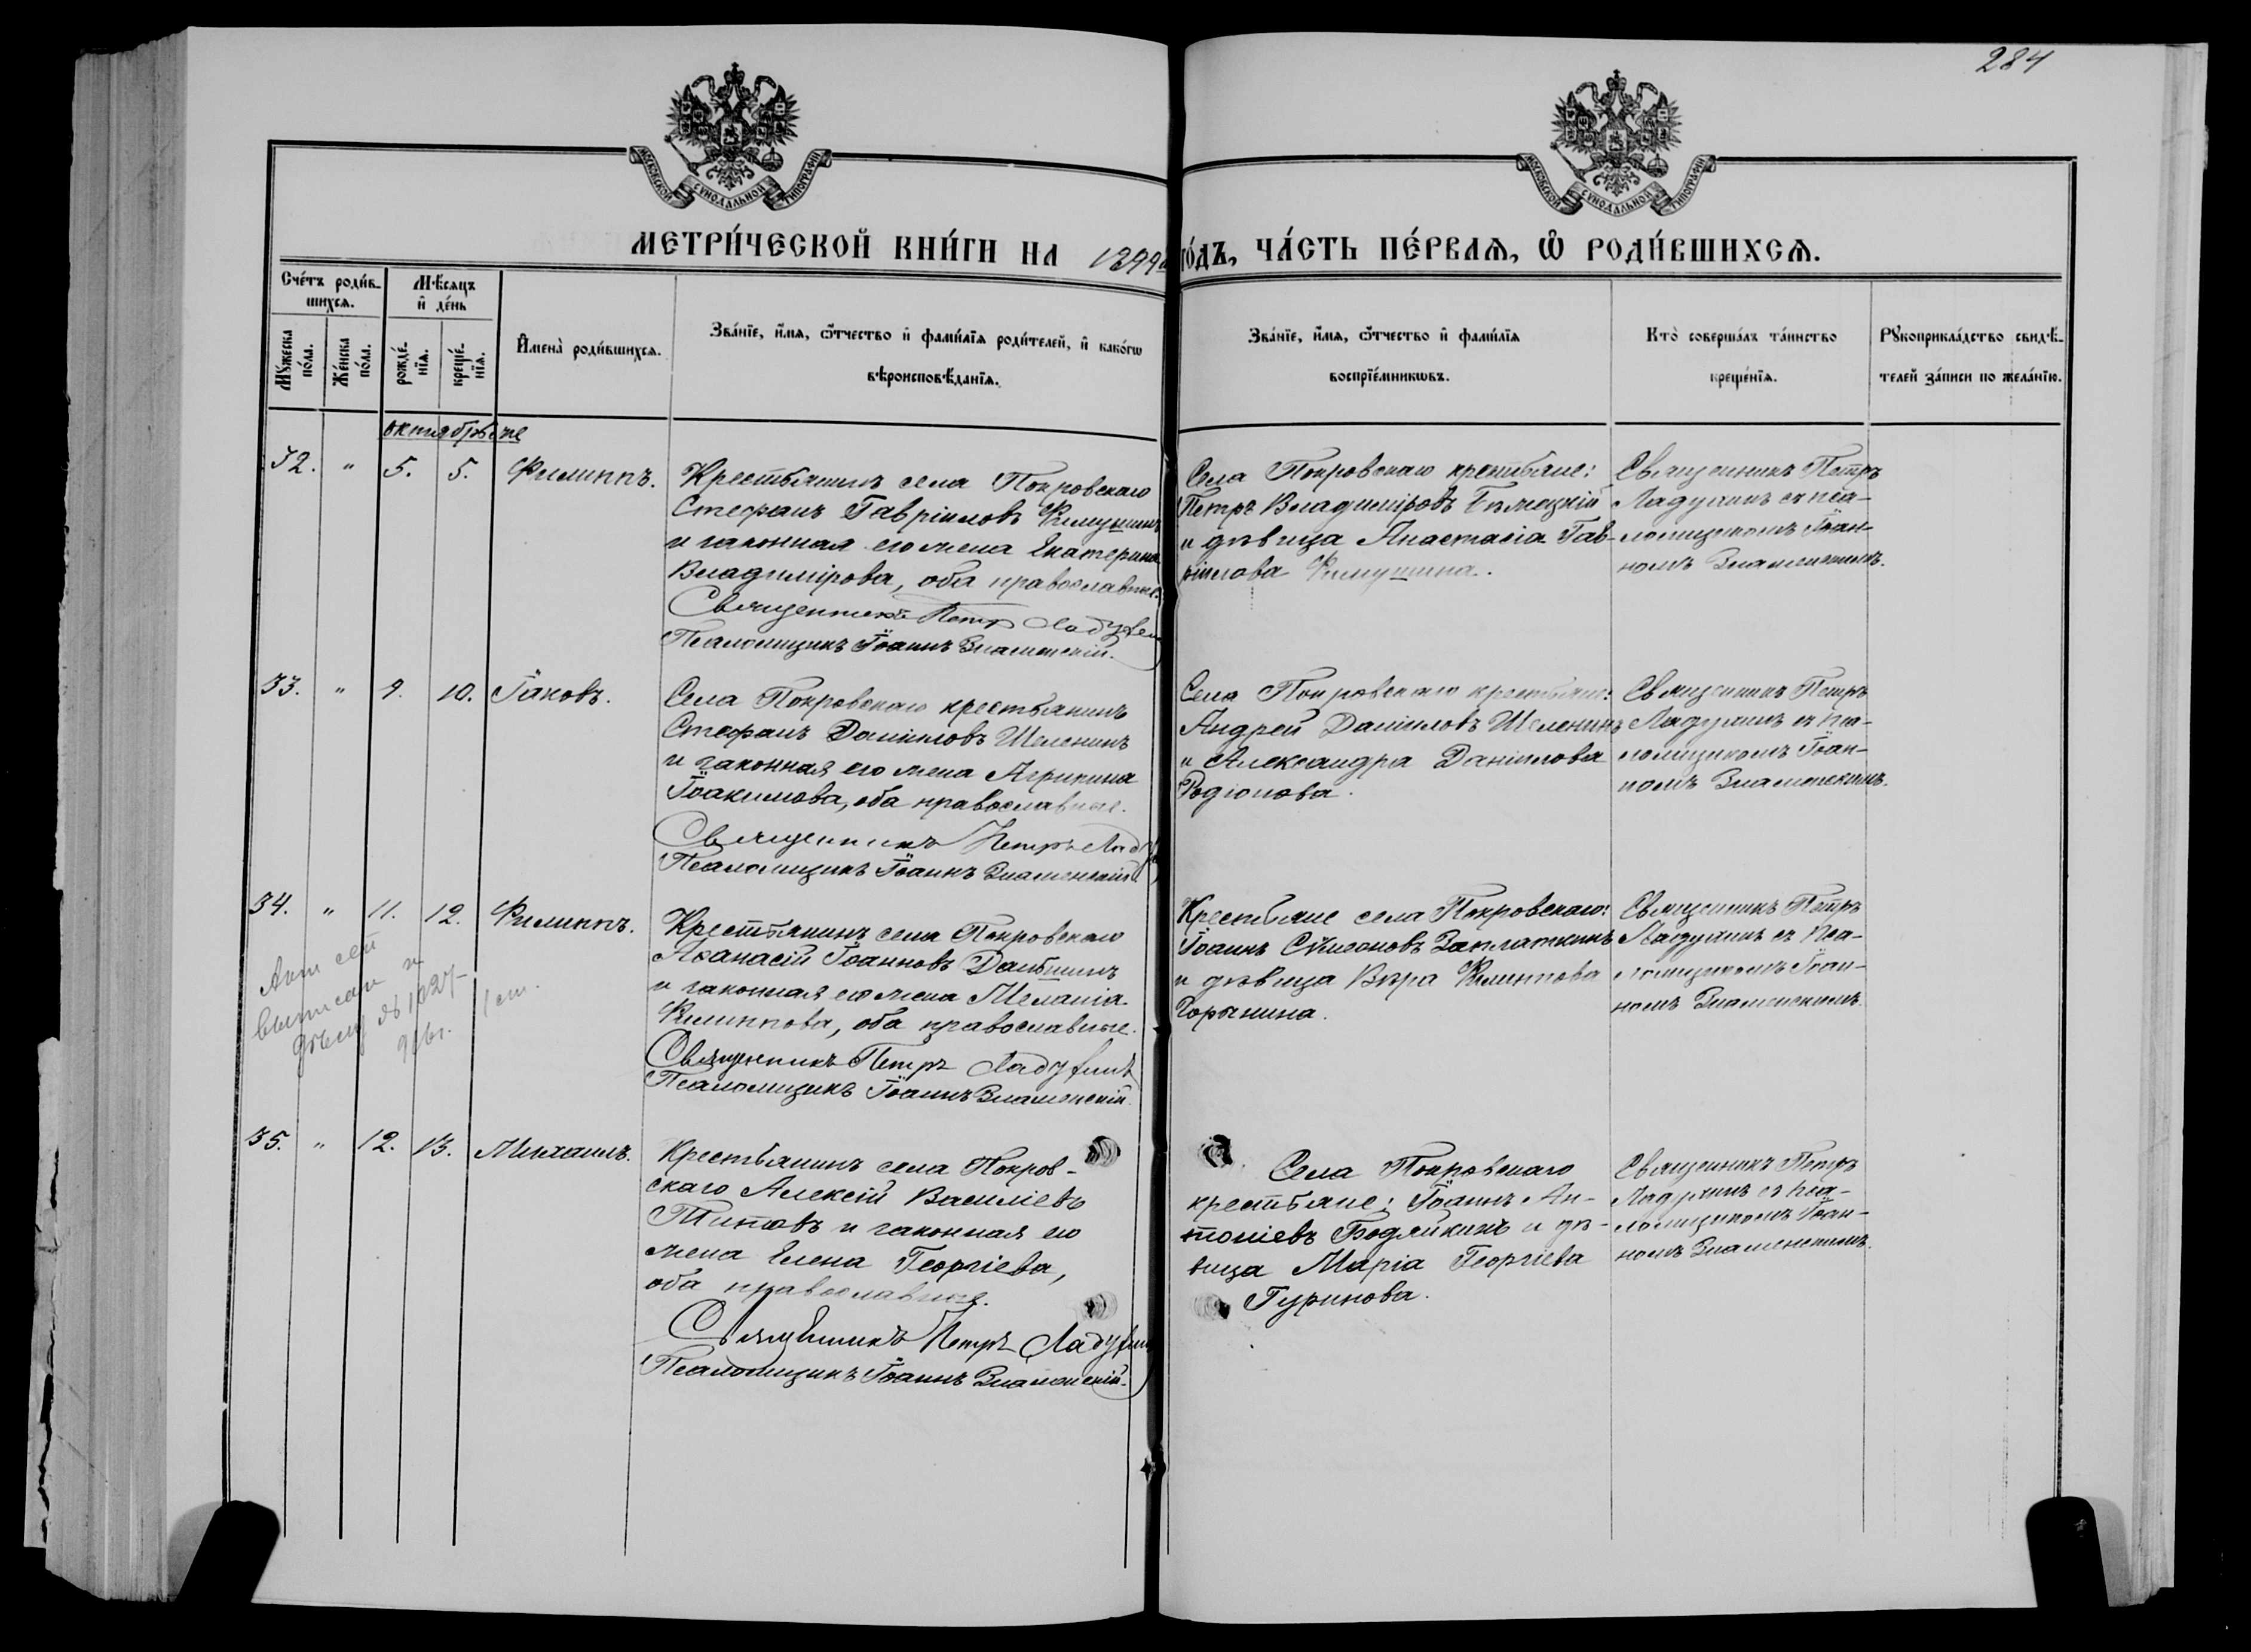 284
МОСКОВСКОЙ СУНОДАЛЬНОЙ ТИПОГРАФИ
МОСКОВСКОЙ СУНОДАЛЬНОЙ ТИПОГРАФИ
МЕТРИ́ЧЕСКОЙ КНИ́ГИ НА 1899 го́дъ, ЧА́СТЬ ПЕ́РВАѦ, Ѡ҆ РОДИ́ВШИХСѦ.
Сче́тъ роди́в-
шихсѧ.
Мѣ́сѧцъ
и҆ де́нь
Мꙋ́жеска
по́ла.
Же́нска
по́ла.
рожде́-
нїѧ.
креще́-
нїѧ.
И҆мена̀ роди́вшихсѧ.
Зва́нїе, и҆́мѧ, ѻ҆́тчество и҆ фами́лїѧ роди́телей, и҆ како́гѡ
вѣроисповѣ́данїѧ.
Зва́нїе, и҆́мѧ, ѻ҆́тчество и҆ фами́лїѧ
воспрїе́мникѡвъ.
Кто̀ соверша́лъ та́инство
креще́нїѧ.
Рꙋкоприкла́дство свидѣ́-
телей за́писи по жела́нїю.
32. " 5. 5. Филиппъ.
Крестьянинъ села Покровскаго
Стефанъ Гавріиловъ
и законная его жена Екатерина
Владимірова, оба православные.
Священникъ Петръ
Псаломщикъ Іоаннъ Знаменскій.
Села Покровскаго крестьяне:
Петръ Владиміровъ
и дѣвица Анастасія Гав-
ріилова
Священникъ Петръ
Ладухинъ съ пса-
ломщикомъ Іоан-
номъ Знаменскимъ.
33. " 9. 10. Іаковъ.
Села Покровскаго крестьянинъ
Стефанъ Даніиловъ Шеленинъ
и законная его жена Агрипина
Іоакимова, оба православные.
Священникъ Петръ
Псаломщикъ Іоаннъ Знаменскій
Села Покровскаго крестьяне:
Андрей Даніиловъ Шеленинъ
и Александра Даніилова
Родіонова.
Священникъ Петръ
Ладухинъ съ пса-
ломщикомъ Іоан-
номъ Знаменскимъ.
34. " 11. 12. Филиппъ.
Крестьянинъ села Покровскаго
Аѳанасій Іоанновъ
и законная его жена Меланія
Филиппова, оба православные.
Священникъ Петръ
Псаломщикъ Іоаннъ Знаменскій.
Крестьяне села Покровскаго:
Іоаннъ Сѵмеоновъ Заплаткинъ
и дѣвица Вѣра Филиппова
Горынина.
Священникъ Петръ
Ладухинъ съ пса-
ломщикомъ Іоан-
номъ Знаменскимъ.
35. " 12. 13. Михаилъ.
Крестьянинъ села Покров-
скаго Алексій Василіевъ
Титовъ и законная его
жена Елена Георгіева,
оба православные.
Священникъ Петръ
Псаломщикъ Іоаннъ Знаменскій.
Села Покровскаго
крестьяне: Іоаннъ Ан-
тоніевъ Бодяйкинъ и дѣ-
вица Марія Георгіева
Гуринова.
Священникъ Петръ
Ладухинъ съ пса-
ломщикомъ Іоан-
номъ Знаменскимъ.